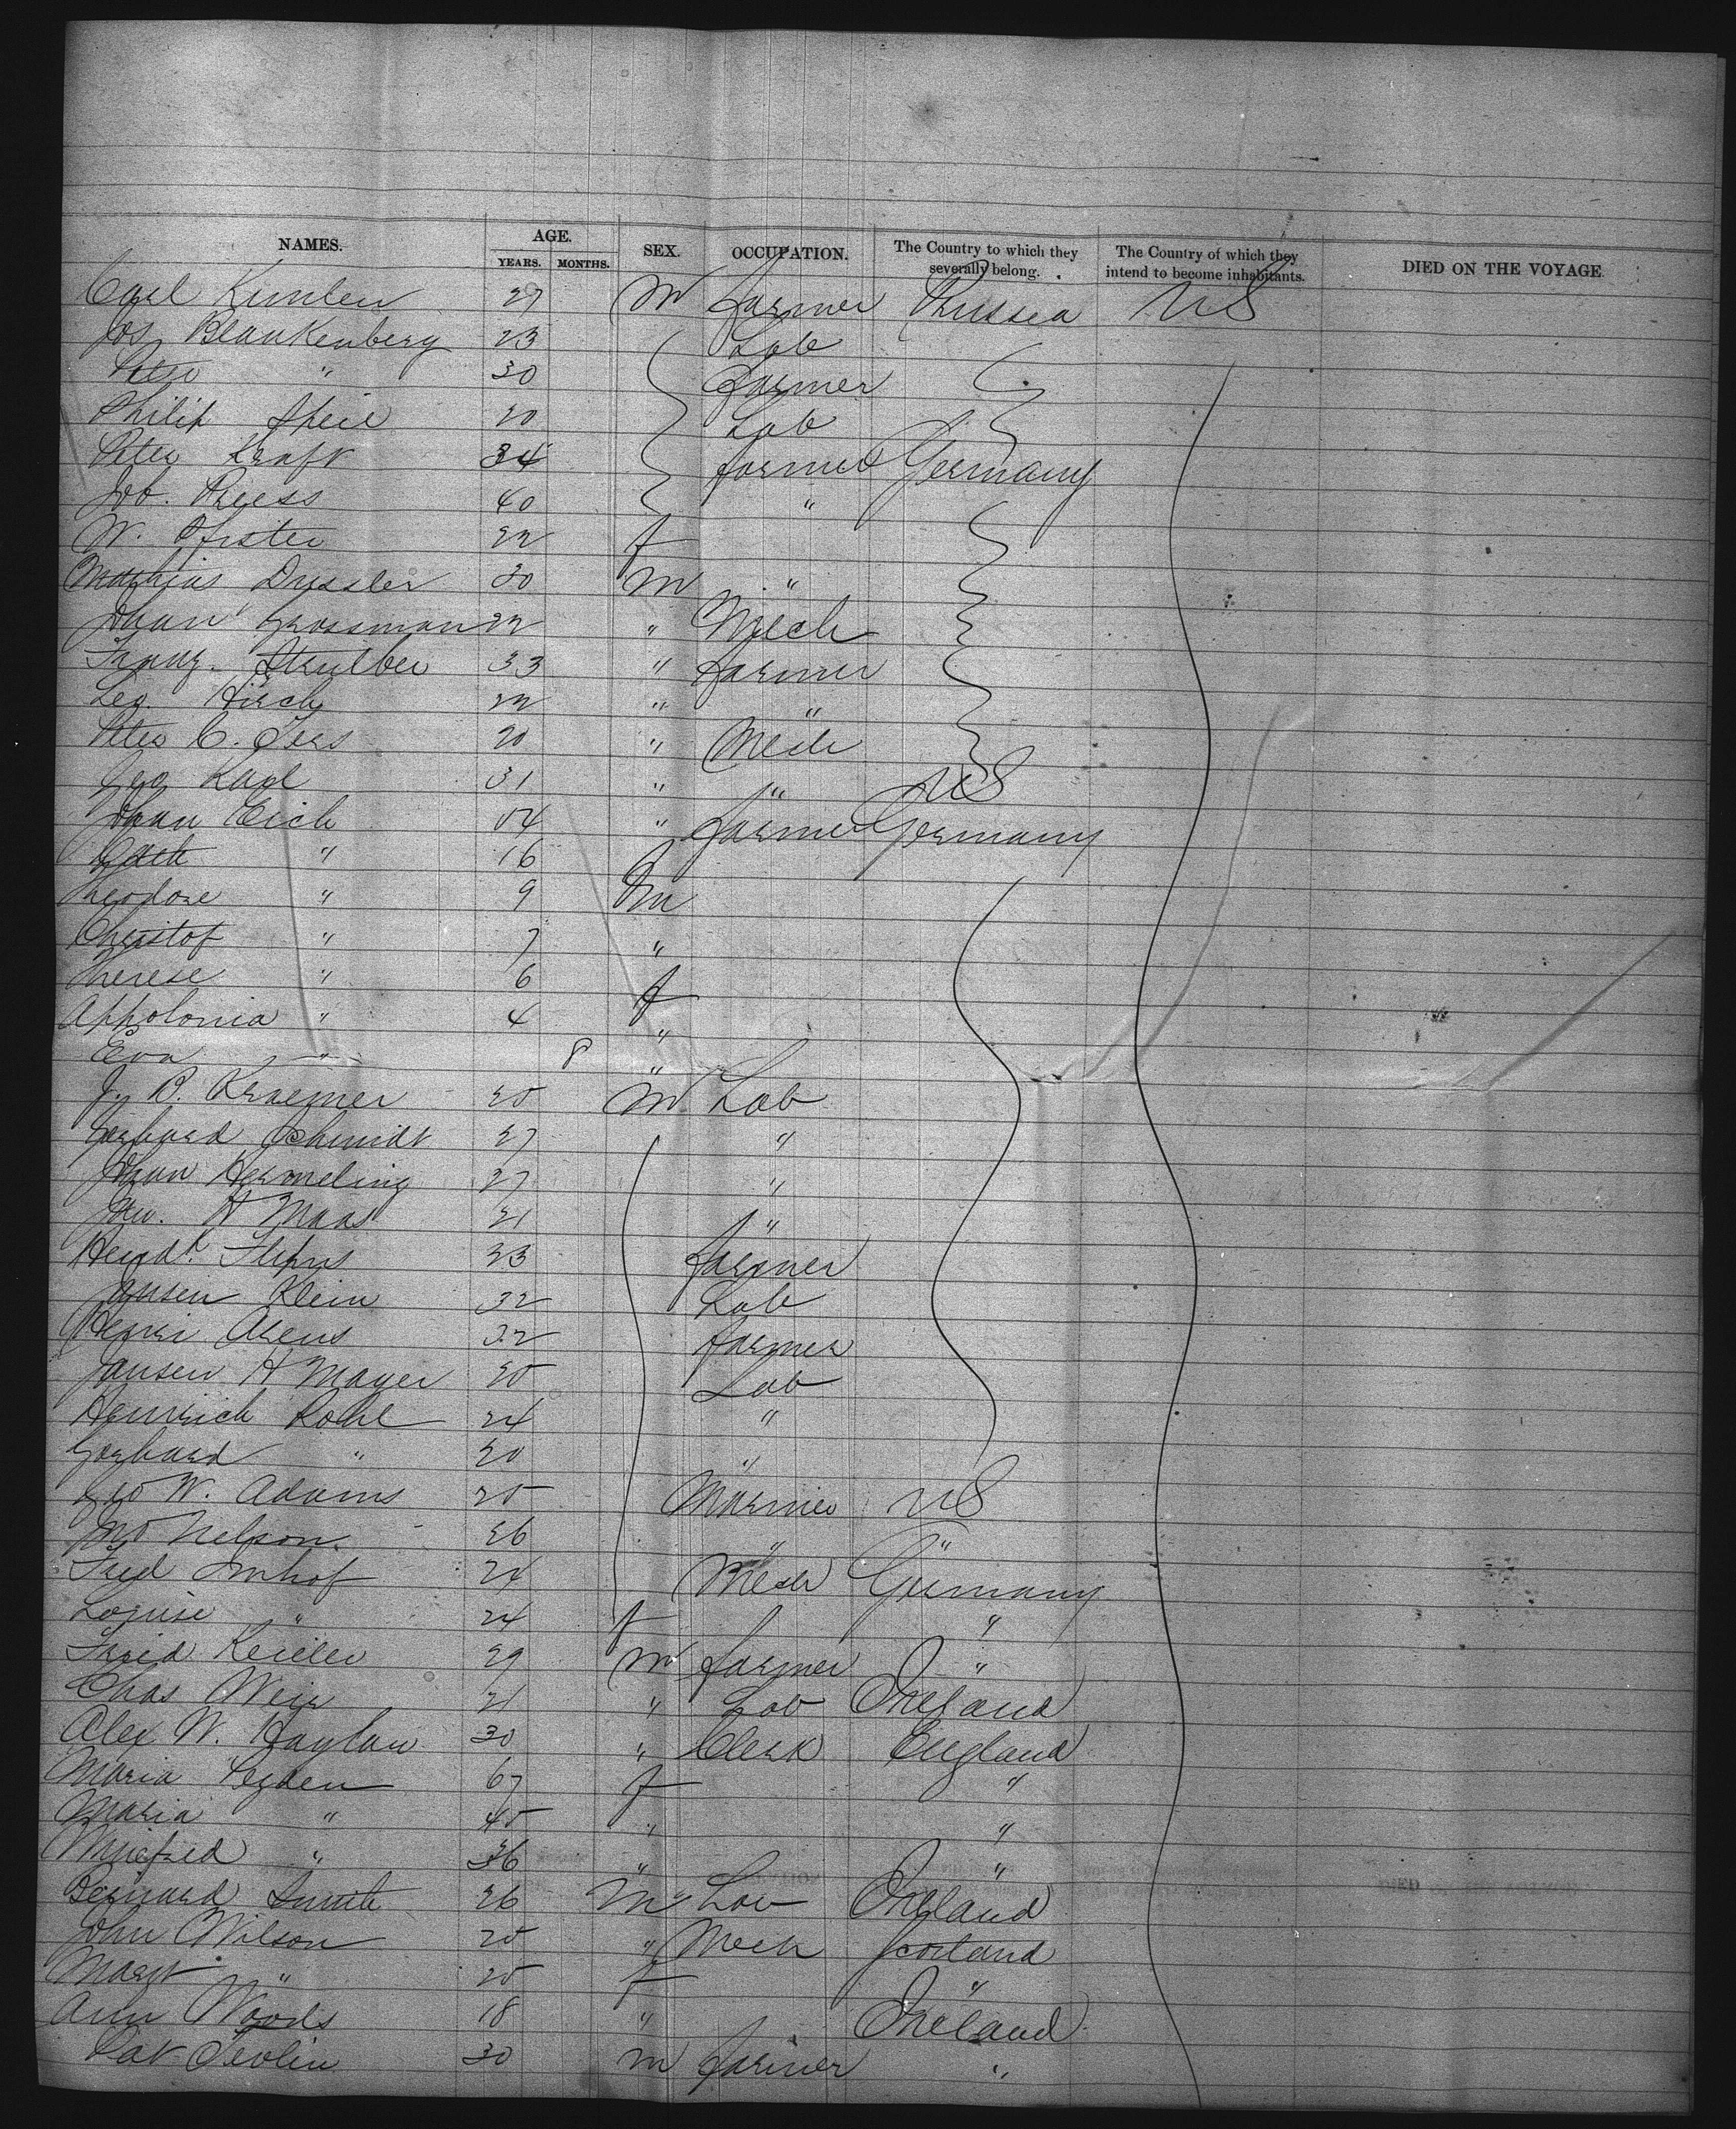 NAMES. AGE. SEX. OCCUPATION. The Country to which they severally belong. The Country of which they intend to become inhabitants. DIED ON THE VOYAGE
YEARS. MONTHS.
Carl 27 M farmer Prussia US
Jos Blankenberg 23 Lab
Peter " 30 farmer
Philip 20 Lab
Peter Kraft 34 farmer Germany
Job. Preess 40 "
W. Pfister 22 f
Mathias Dressler 30 m "
Johan Grossman 22 " Mech
Franz. 33 " farmer
Leo. Hirch 22 " "
Peter C. 20 " Mech
Geo Karl 31 " " US
Johan Eich 54 " farmer Germany
Cath " 16 f
Theodore " 9 m
Christof " 7 "
Therese " 6 f
Appolonia " 4 "
Eva " 8 "
J. P. Kraemer 25 M Lab
Gerhard Schmidt 27 "
Johan Hermeling 27 "
H Maas 21 "
23 farmer
Jansen Klein 32 Lab
Henri Arens 32 farmer
Jansen H Mayer 25 Lab
Heinrich Rohl 24 "
Gerhard " 20 "
Geo W. Adams 25 Mariner US
Jno Nelson. 26 " "
Fred Imhof 24 Mech Germany
Louise " 24 f "
Fried Keiller 29 m farmer "
Chas Weir 21 " Lab Ireland
Alex W. 30 " Clerk England
Maria 67 f "
Maria " 45 " "
" 36 " "
Bernard Smith 26 M Lab Ireland
John Wilson 25 " Mech Scotland
Mary " 25 f "
Ann Woods 18 " Ireland
Pat Devlin 30 m farmer "